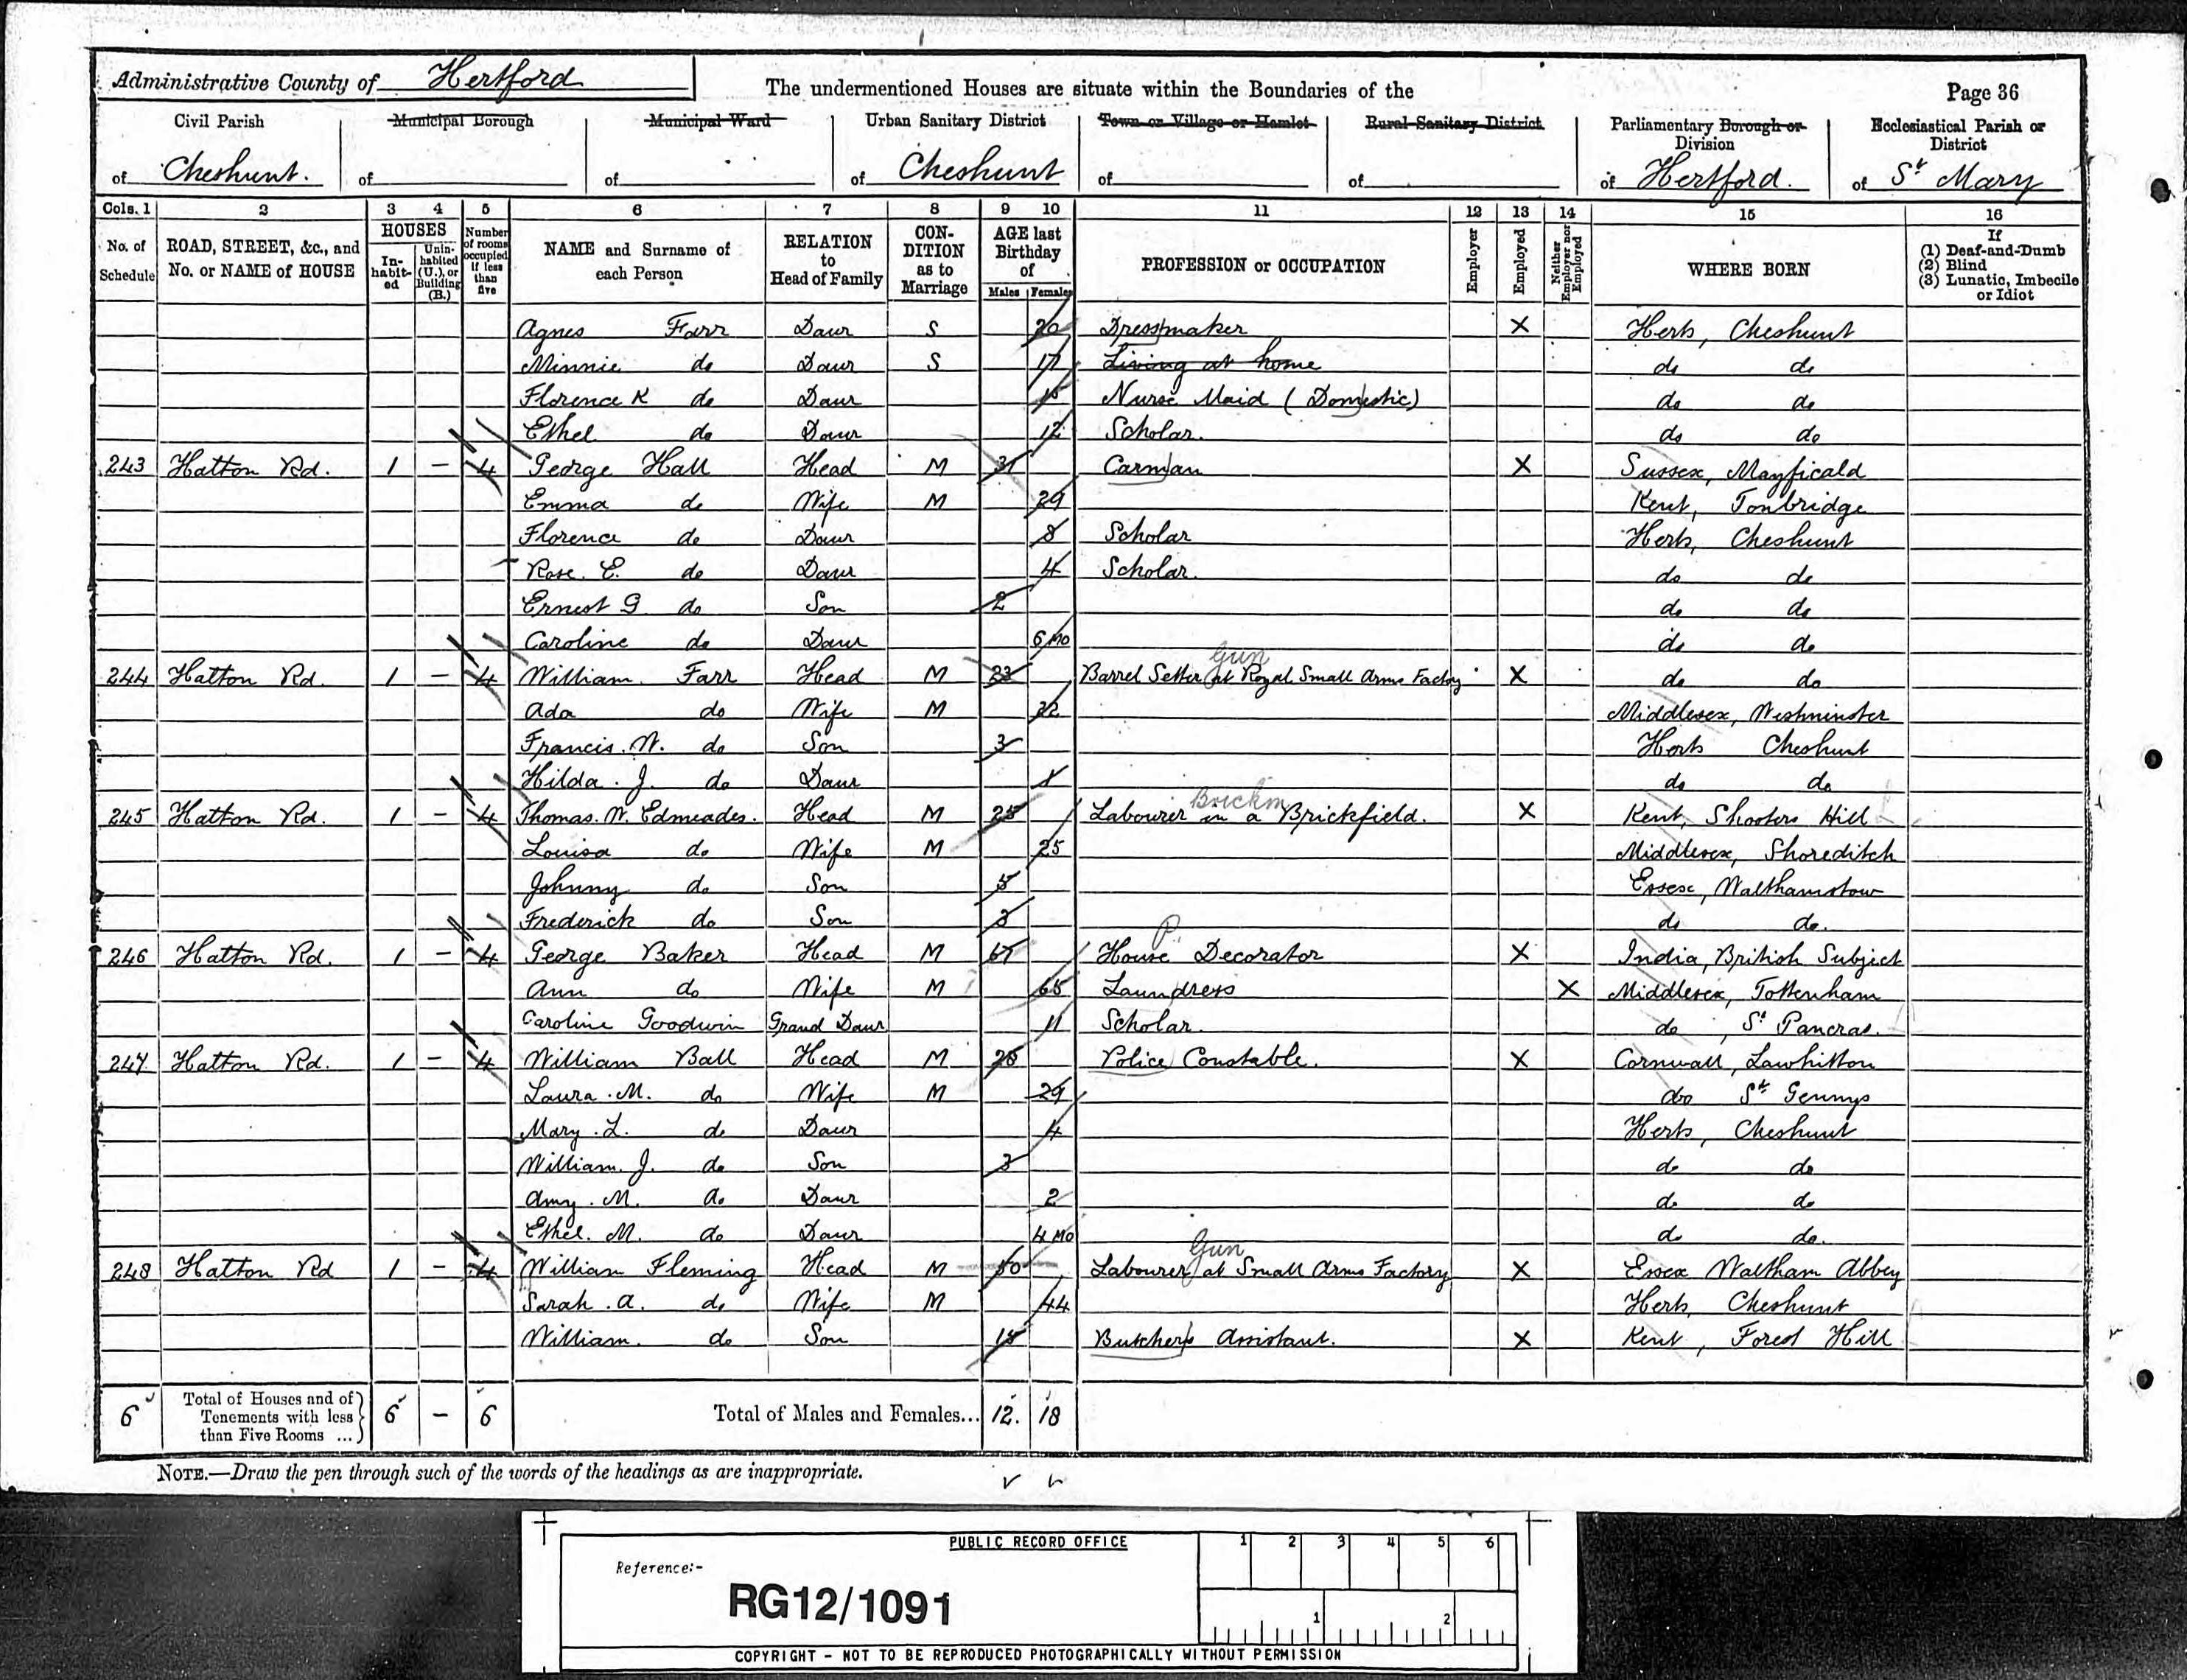 Administrative County of Hertford The undermentioned Houses are situate within the Boundaries of the Page 36
Civil Parish Municipal Borough Municipal Ward Urban Sanitary District Town or Village or Hamlet Rural Sanitary District Parliamentary Borough or Division Ecclesiastical Parish or District
of Cheshunt. of of of Cheshunt of of of Hertford. of St Mary
Cols. 1 2 3 4 5 6 7 8 9 10 11 12 13 14 15 16
No. of Schedule ROAD, STREET, &c., and No. or NAME of HOUSE HOUSES In-habit-ed Unin-habited (U.), or Building (B.) Number of rooms occupied if less than five NAME and Surname of each Person RELATION to Head of Family CON-DITION as to Marriage AGE last Birthday of Males Females PROFESSION or OCCUPATION Employer Employed Neither Employer nor Employed WHERE BORN If (1) Deaf-and-Dumb (2) Blind (3) Lunatic, Imbecile or Idiot
Agnes Farr Daur S 20 Dressmaker X Herts, Cheshunt
Minnie do Daur S 17 Living at home do do
Florence K do Daur 15 Nurse Maid (Domestic) do do
Ethel do Daur 12 Scholar. do do
243 Hatton Rd. 1 – 4 George Hall Head M 31 Carman X Sussex, Mayfieald
Emma do Wife M 29 Kent, Tonbridge
Florence do Daur 8 Scholar Herts, Cheshunt
Rose. E. do Daur 4 Scholar. do do
Ernest G do Son 2 do do
Caroline do Daur 6 Mo do do
Gun
244 Hatton Rd. 1 – 4 William. Farr Head M 23 Barrel Setter at Royal Small Arms Factory X do do
Ada do Wife M 22 Middlesex, Westminster
Francis. W. do Son 3 Herts Cheshunt
Hilda. J. do Daur 1 do do
Brickm
245 Hatton Rd. 1 – 4 Thomas. W. Edmeades. Head M 25 Labourer in a Brickfield. X Kent, Shooters Hill
Louisa do Wife M 25 Middlesex, Shoreditch
Johnny do Son 5 Essex, Walthamstow
Frederick do Son 3 do do.
P
246 Hatton Rd. 1 – 4 George Baker Head M 67 House Decorator X India, British Subject
Ann do Wife M 65 Laundress X Middlesex, Tottenham
Caroline Goodwin Grand Daur 11 Scholar. do, St Pancras.
247. Hatton Rd. 1 – 4 William Ball Head M 28 Police Constable. X Cornwall, Lawhitton
Laura. M. do Wife M 29 do St Gennys
Mary. L. do Daur 4 Herts, Cheshunt
William. J. do Son 3 do do
Amy. M. do Daur 2 do do
Ethel. M. do Daur 4 Mo do do.
Gun
248 Hatton Rd 1 – 4 William Fleming Head M 50 Labourer at Small Arms Factory X Essex Waltham Abbey
Sarah. A. do Wife M 44 Herts, Cheshunt
William. do Son 15 Butchers Assistant. X Kent, Forest Hill
6 Total of Houses and of Tenements with less than Five Rooms ... 6 – 6 Total of Males and Females... 12. 18
NOTE.—Draw the pen through such of the words of the headings as are inappropriate.
PUBLIC RECORD OFFICE 1 2 3 4 5 6
Reference:-
RG12/1091
1 2
COPYRIGHT - NOT TO BE REPRODUCED PHOTOGRAPHICALLY WITHOUT PERMISSION